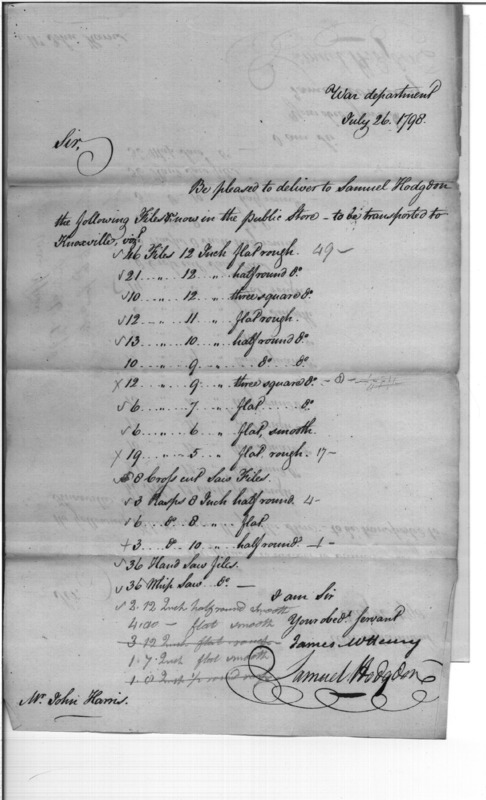 War department
July 26. 1798.
Sir,
Be pleased to deliver to Samuel Hodgdon
the following Files now in the Public Store - to be transported to
Knoxville, vizt
46 Files 12 Inch flat rough. 49 -
√ 21 .. " .. 12 .. " .. half round do
√ 10 .. " .. 12 .. " .. three square do
√ 12 .. " .. 11 .. " .. flat rough.
√ 13 .. " .. 10 .. " .. half round do
10 .. " .. 9 .. " .. do do
X 12 .. " .. 9 .. " .. three square do
√ 6 .. " .. 7 .. " .. flat .... do
√ 6 .. " .. 6 .. " .. flat, smooth.
X 19 .. " .. 5 .. " .. flat rough. 17 -
8 Cross cut Saw Files.
√ 3 Rasps 8 Inch half round. 4 -
√ 6 .. do .. 8 .. " .. flat
+ 3 .. do .. 10 .. " .. half round.
√ 36 Hand Saw files.
√ 36 Whip Saw .. do -
√ 2. 12 Inch half round smooth
flat smooth
3 12 Inch flat rough
1. 7 Inch flat smooth
I am Sir
Your obedt. Servant
James McHenry
Samuel Hodgdon
Mr. John Harris.